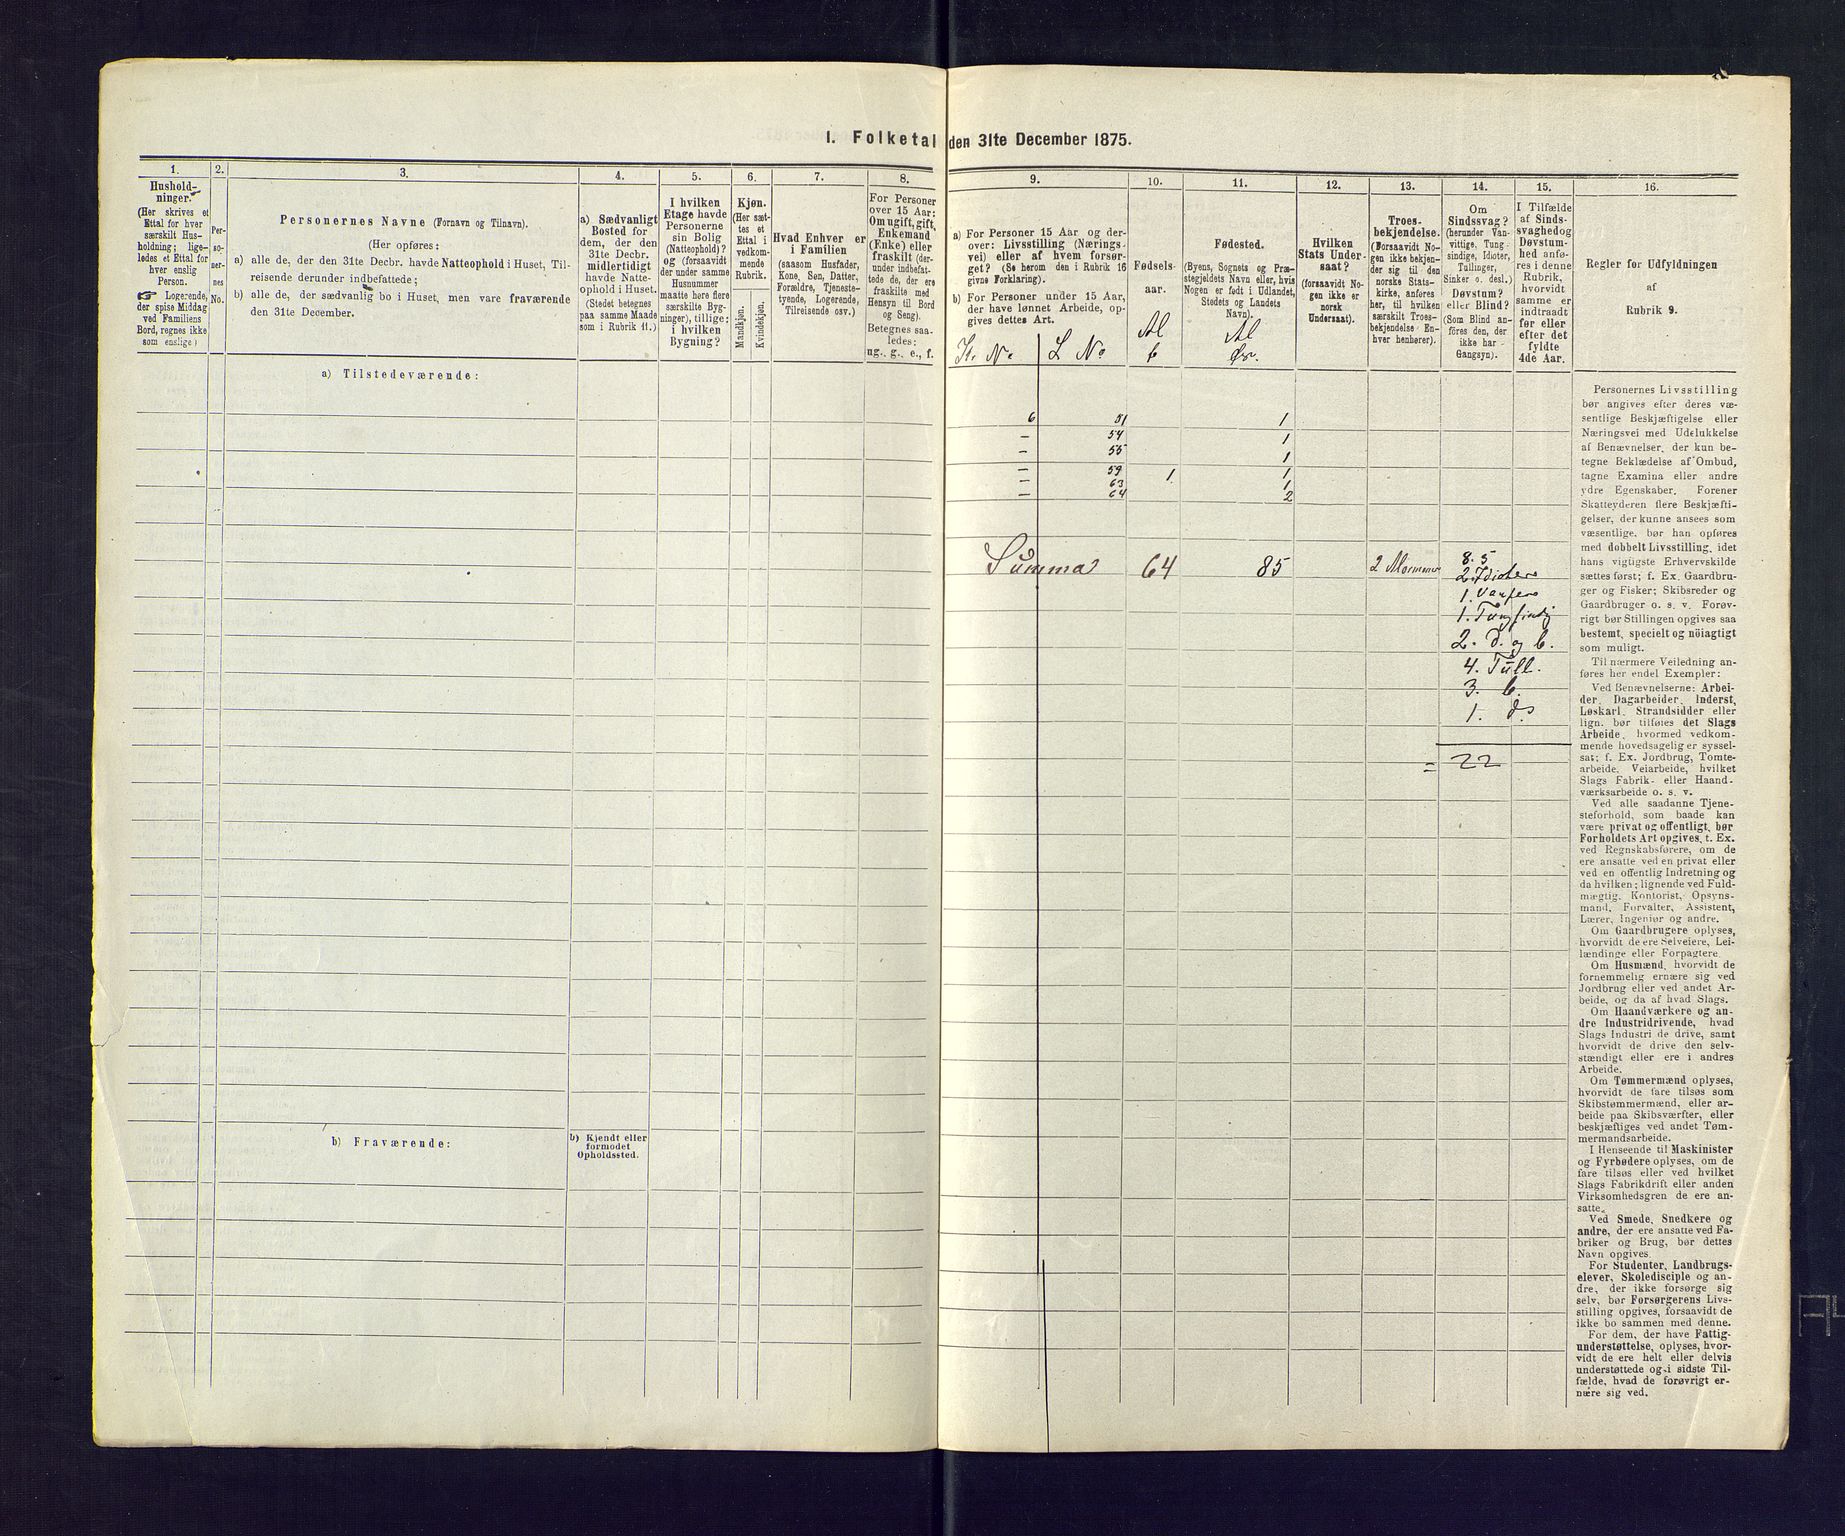 I. Folketal den 31te December 1875.
1.
Hushold-
ninger.
(Her skrives et
Ettal for hver
særskilt Hus-
holdning; lige-
ledes et Ettal for
hver enslig
Person.
☞ Logerende,
der spise Middag
ved Familiens
Bord, regnes ikke
som enslige.)
2.
Per-
so-
ner-
nes
No.
3.
Personernes Navne (Fornavn og Tilnavn).
(Her opføres:
a) alle de, der den 31te Decbr. havde Natteophold i Huset, Til-
reisende derunder indbefattede;
b) alle de, der sædvanlig bo i Huset, men vare fraværende
den 31te December.
4.
a) Sædvanligt
Bosted for
dem, der den
31te Decbr.
midlertidigt
havde Natte-
ophold i Huset.
(Stedet betegnes
paa samme Maade
som i Rubrik 11.)
5.
I hvilken
Etage havde
Personerne
sin Bolig
(Natteophold)?
og (forsaavidt
der under samme
Husnummer
maatte høre flere
særskilte Byg-
ninger), tillige:
i hvilken
Bygning?
6.
Kjøn.
(Her sæt-
tes et
Ettal i
vedkom-
mende
Rubrik.
Mandkjøn.
Kvindekjøn.
7.
Hvad Enhver er
i Familien
(saasom Husfader,
Kone, Søn, Datter,
Forældre, Tjeneste-
tyende, Logerende,
Tilreisende osv.)
8.
For Personer
over 15 Aar:
Om ugift, gift,
Enkemand
(Enke) eller
fraskilt (der-
under indbefat-
tede de, der ere
fraskilte med
Hensyn til Bord
og Seng).
Betegnes saa-
ledes:
ug., g., e., f.
9.
a) For Personer 15 Aar og der-
over: Livsstilling (Nærings-
vei) eller af hvem forsør-
get? (Se herom den i Rubrik 16
givne Forklaring).
b) For Personer under 15 Aar,
der have lønnet Arbeide, op-
gives dettes Art.
K. No. L No
10.
Fødsels-
aar.
Al
b
11.
Fødested.
(Byens, Sognets og Præ-
stegjeldets Navn eller, hvis
Nogen er født i Udlandet,
Stedets og Landets
Navn).
Al
Øv.
12.
Hvilken
Stats Under-
saat?
(forsaavidt No-
gen ikke er
norsk
Undersaat).
13.
Troes-
bekjendelse.
(Forsaavidt No-
gen ikke bekjen-
der sig til den
norske Stats-
kirke, anføres
her, til hvilken
særskilt Troes-
bekjendelse En-
hver henhører).
14.
Om
Sindssvag?
(herunder Van-
vittige, Tung-
sindige, Idioter,
Tullinger,
Sinker o. desl.)
Døvstum?
eller Blind?
(Som Blind an-
føres den, der
ikke har
Gangsyn).
15.
I Tilfælde
af Sinds-
svaghed og
Døvstum-
hed anfø-
res i denne
Rubrik,
hvorvidt
samme er
indtraadt
før eller
efter det
fyldte
4de Aar.
16.
Regler for Udfyldningen
af
Rubrik 9.
a) Tilstedeværende:
6 51 1
— 54 1
— 55 1
— 59 1 1
— 63 1
— 64 2
Summa 64 85 2 Mormner
8. S
2. Idioter
1. Vanføre
1. Tungsindig
2. d. og b.
4. Tull.
3. b.
1. ds
= 22
b) Fraværende:
b) Kjendt eller
formodet
Opholdssted.
Personernes Livsstilling
bør angives efter deres væ-
sentlige Beskjæftigelse eller
Næringsvei med Udelukkelse
af Benævnelser, der kun be-
tegne Beklædelse af Ombud,
tagne Examina eller andre
ydre Egenskaber. Forener
Skatteyderen flere Beskjæfti-
gelser, der kunne ansees som
væsentlige, bør han opføres
med dobbelt Livsstilling, idet
hans vigtigste Erhvervskilde
sættes først; f. Ex. Gaardbru-
ger og Fisker; Skibsreder og
Gaardbruger o. s. v. Forøv-
rigt bør Stillingen opgives saa
bestemt, specielt og nöiagtigt
som muligt.
Til nærmere Veiledning an-
føres her endel Exempler:
Ved Benævnelserne: Arbei-
der, Dagarbeider, Inderst,
Løskarl, Strandsidder eller
lign. bør tilføies det Slags
Arbeide, hvormed vedkom-
mende hovedsagelig er syssel-
sat; f. Ex. Jordbrug, Tomte-
arbeide, Veiarbeide, hvilket
Slags Fabrik- eller Haand-
værksarbeide o. s. v.
Ved alle saadanne Tjene-
steforhold, som baade kan
være privat og offentligt, bør
Forholdets Art opgives, t. Ex.
ved Regnskabsførere, om de
ere ansatte ved en privat eller
ved en offentlig Indretning og
da hvilken; lignende ved Fuld-
mægtig, Kontorist, Opsyns-
mand, Forvalter, Assistent,
Lærer, Ingeniør og andre.
Om Gaardbrugere oplyses,
hvorvidt de ere Selveiere, Lei-
lændinge eller Forpagtere.
Om Husmænd, hvorvidt de
fornemmelig ernære sig ved
Jordbrug eller ved andet Ar-
beide, og da af hvad Slags.
Om Haandværkere og an-
dre Industridrivende, hvad
Slags Industri de drive, samt
hvorvidt de drive den selv-
stændigt eller ere i andres
Arbeide.
Om Tømmermænd oplyses,
hvorvidt de fare tilsøs som
Skibstømmermænd, eller ar-
beide paa Skibsværfter, eller
beskjæftiges ved andet Tøm-
mermandsarbeide.
I Henseende til Maskinister
og Fyrbødere oplyses, om de
fare tilsøs eller ved hvilket
Slags Fabrikdrift eller anden
Virksomhedsgren de ere an-
satte.
Ved Smede, Snedkere og
andre, der ere ansatte ved Fa-
briker og Brug, bør dettes
Navn opgives.
For Studenter, Landbrugs-
elever, Skoledisciple og an-
dre, der ikke forsørge sig
selv, bør Forsørgerens Livs-
stilling opgives, forsaavidt de
ikke bo sammen med denne.
For dem, der have Fattig-
understøttelse, oplyses, hvor-
vidt de ere helt eller delvis
understøttede og i sidste Til-
fælde, hvad de forøvrigt er-
nære sig ved.